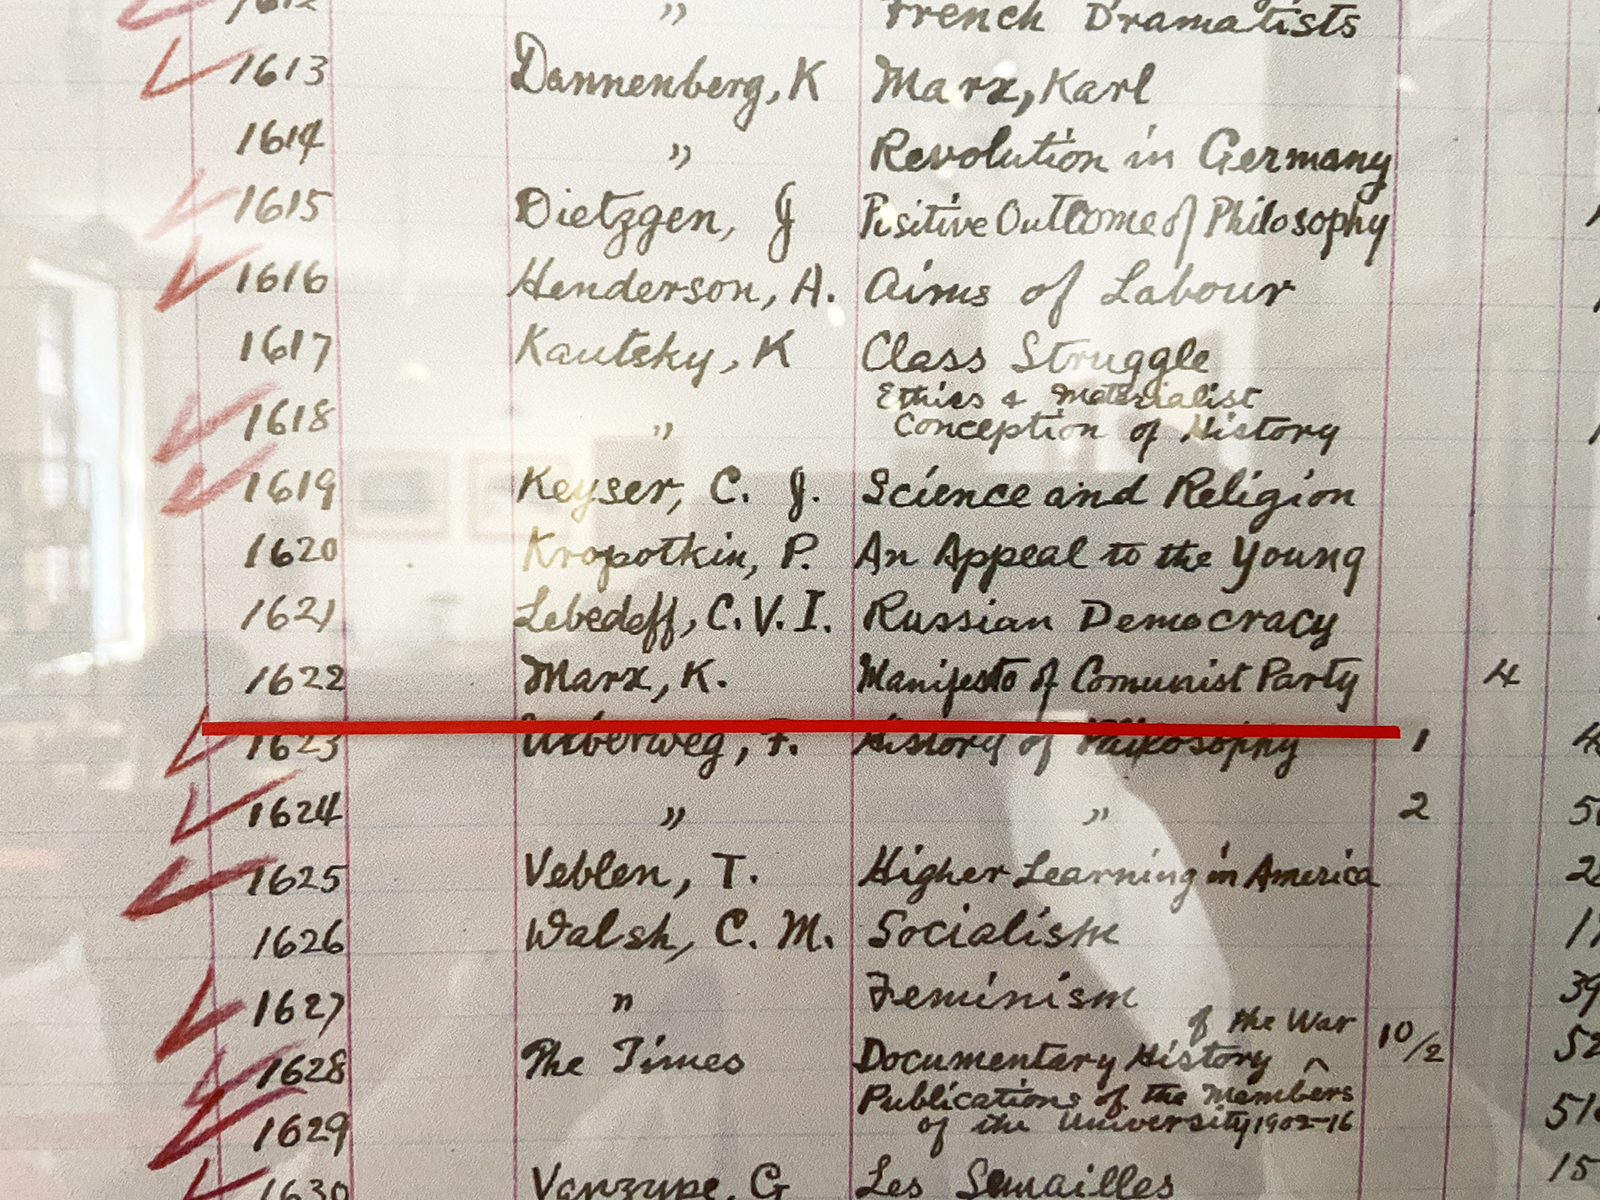 1612 " French Dramatists
1613 Dannenberg, K Marx, Karl
1614 " Revolution in Germany
1615 Dietzgen, J Positive Outcome of Philosophy
1616 Henderson, A. Aims of Labour
1617 Kautsky, K Class Struggle
Ethics & Materialist
1618 " Conception of History
1619 Keyser, C. J. Science and Religion
1620 Kropotkin, P. An Appeal to the Young
1621 Lebedeff, C. V. I. Russian Democracy
1622 Marx, K. Manifesto of Comunist Party 4
1623 Ueberweg, F. History of Philosophy 1
1624 " " 2
1625 Veblen, T. Higher Learning in America
1626 Walsh, C. M. Socialism
1627 " Feminism
of the War
1628 The Times Documentary History ^ 10/2
Publications of the Members
1629 of the University 1902-16
1630 G Les Semailles